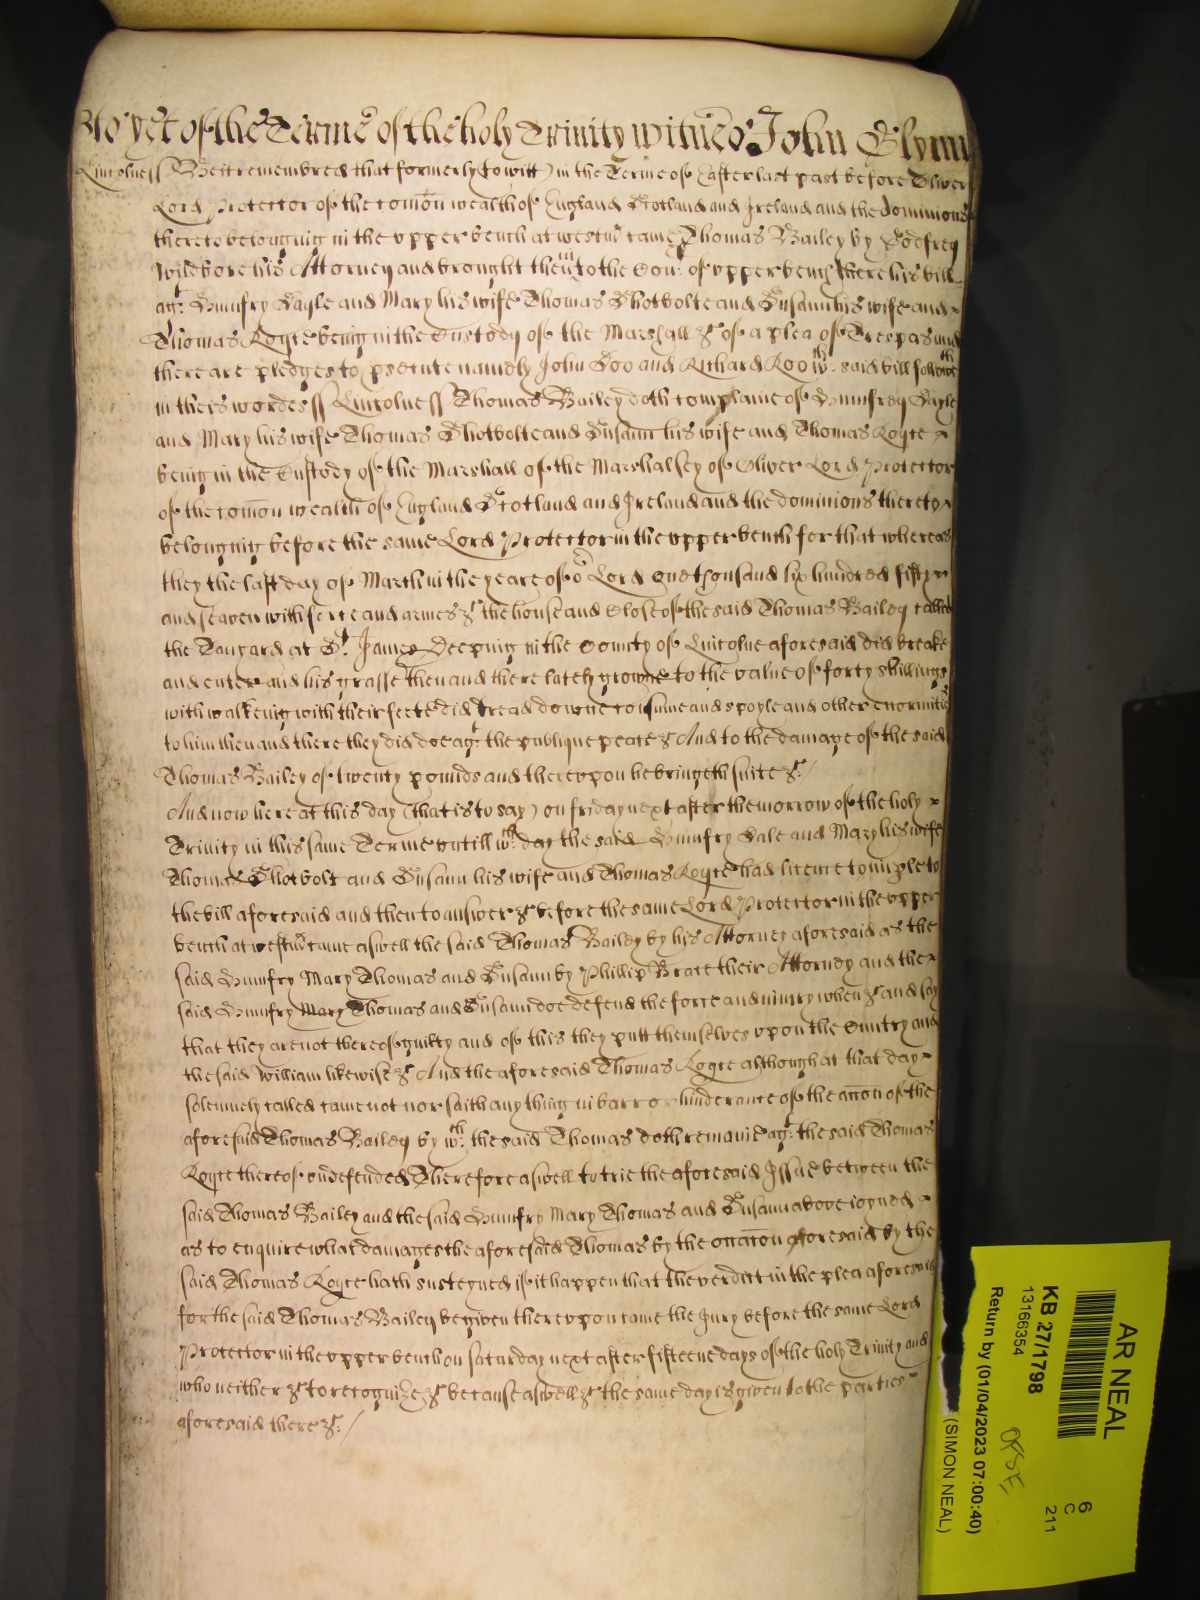 As yet of the Terme of the holy Trinity witnes John Glynn
Lincolne ss Be it remembred that formerly (to witt) in the Terme of Easter last past before Oliver
Lord Protector of the comon wealth of England Scotland and Ireland and the dominions
thereto belonging in the vpper bench at westm̃ came Thomas Bailey by Godfrey
Wildbore his Attorney and brought then into the Court of vpper bench there his bill
agt Humfry Eagle and Mary his wife Thomas Shotbolte and Susann his wife and
Thomas Royce being in the Custody of the Marshall &c of a plea of Trespas and
there are pledges to psecute namely John Doo and Richard Roo wch said bill followeth
in theis wordes ss Lincolne ss Thomas Bailey doth complaine of Humfrey Eagle
and Mary his wife Thomas Shotbolte and Susann his wife and Thomas Royce
being in the Custody of the Marshall of the Marshalsey of Oliver Lord Protector
of the comon wealth of England Scotland and Ireland and the dominions thereto
belonging before the same Lord Protector in the vpper bench for that whereas
they the last day of March in the yeare of or Lord one thousand six hundred fifty
and seaven with force and armes &c the house and Close of the said Thomas Bailey called
the Tanyard at St James Deeping in the County of Lincolne aforesaid did breake
and enter and his grasse then and there lately growne to the value of forty shillings
with walkeing with their feete did tread downe consume and spoyle and other enormities
to him then and there they did doe agt the publique peace &c And to the damage of the said
Thomas Bailey of twenty pounds and therevpon he bringeth suite &c
And now here at this day (that is to say) on friday next after the morrow of the holy
Trinity in this same Terme vntill wch day the said Humfry Eale and Mary his wife
Thomas Shotbolt and Susann his wife and Thomas Royce had licence to imple to
the bill aforesaid and then to answer &c before the same Lord Protector in the vpper
bench at westm̃ came aswell the said Thomas Bailey by his Attorney aforesaid as the
said Humfry Mary Thomas and Susann by Phillip Brace their Attorney and the
said Humfry Mary Thomas and Susann doe defend the force and iniury when &c and say
that they are not thereof guilty and of this they putt themselves vpon the Cuntry and
the said William likewise &c And the aforesaid Thomas Royce although at that day
solemnely called came not nor saith any thing in barr or hinderance of the accon of the
aforesaid Thomas Bailey by wch the said Thomas doth remaine agt the said Thomas
Royce thereof vndefended Therefore aswell to trie the aforesaid Issue between the
said Thomas Bailey and the said Humfry Mary Thomas and Susann above ioyned
as to enquire what damages the aforesaid Thomas by the occacon aforesaid by the
said Thomas Royce hath susteyned if it happen that the verdict in the plea aforesaid
for the said Thomas Bailey be given therevpon came the Jury before the same Lord
Protector in the vpper bench on saturday next after fifteene days of the holy Trinity and
who neither &c to recognize &c because aswell &c the same day is given to the parties
aforesaid there &c
AR NEAL
6
C
211
KB 27/1798
13166354
Return by (01/04/2023 07:00:40)
(SIMON NEAL)